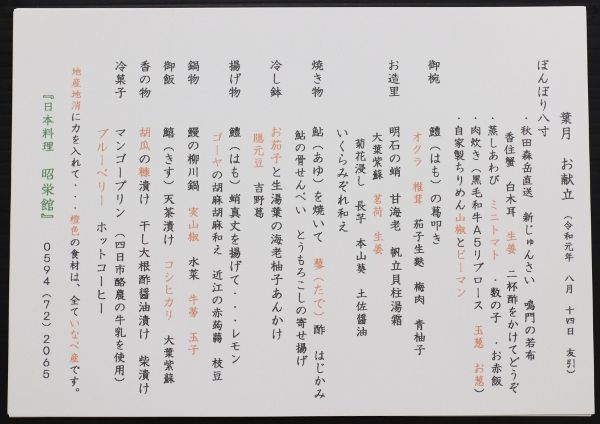 葉月　お献立　（令和元年　八月　十四日　友引）
ぼんぼり八寸
・秋田森岳直送　新じゅんさい　鳴門の若布
香住蟹　白木耳　生姜　二杯酢をかけてどうぞ
・蒸しあわび　ミニトマト　・数の子　・お赤飯
・肉炊き（黒毛和牛A5リブロース　玉葱　お葱）
・自家製ちりめん山椒とピーマン
御椀　鱧（はも）の葛叩き
オクラ　椎茸　茄子生麩　梅肉　青柚子
お造里　明石の蛸　甘海老　帆立貝柱湯霜
大葉紫蘇　茗荷　生姜
菊花浸し　長芋　本山葵　土佐醤油
いくらみぞれ和え
焼き物　鮎（あゆ）を焼いて　蓼（たで）酢　はじかみ
鮎の骨せんべい　とうもろこしの寄せ揚げ
冷し鉢　お茄子と生湯葉の海老柚子あんかけ
隠元豆　吉野葛
揚げ物　鱧（はも）蛸真丈を揚げて・・・レモン
ゴーヤの胡麻胡麻和え　近江の赤蒟蒻　枝豆
鍋物　鰻の柳川鍋　実山椒　水菜　牛蒡　玉子
御飯　鱚（きす）天茶漬け　コシヒカリ　大葉紫蘇
香の物　胡瓜の糠漬け　干し大根酢醤油漬け　柴漬け
冷菓子　マンゴープリン　（四日市酪農の牛乳を使用）
ブルーベリー　ホットコーヒー
地産地消に力を入れて・・・橙色の食材は、全ていなべ産です。
『日本料理　昭栄館』　0594（72）2065